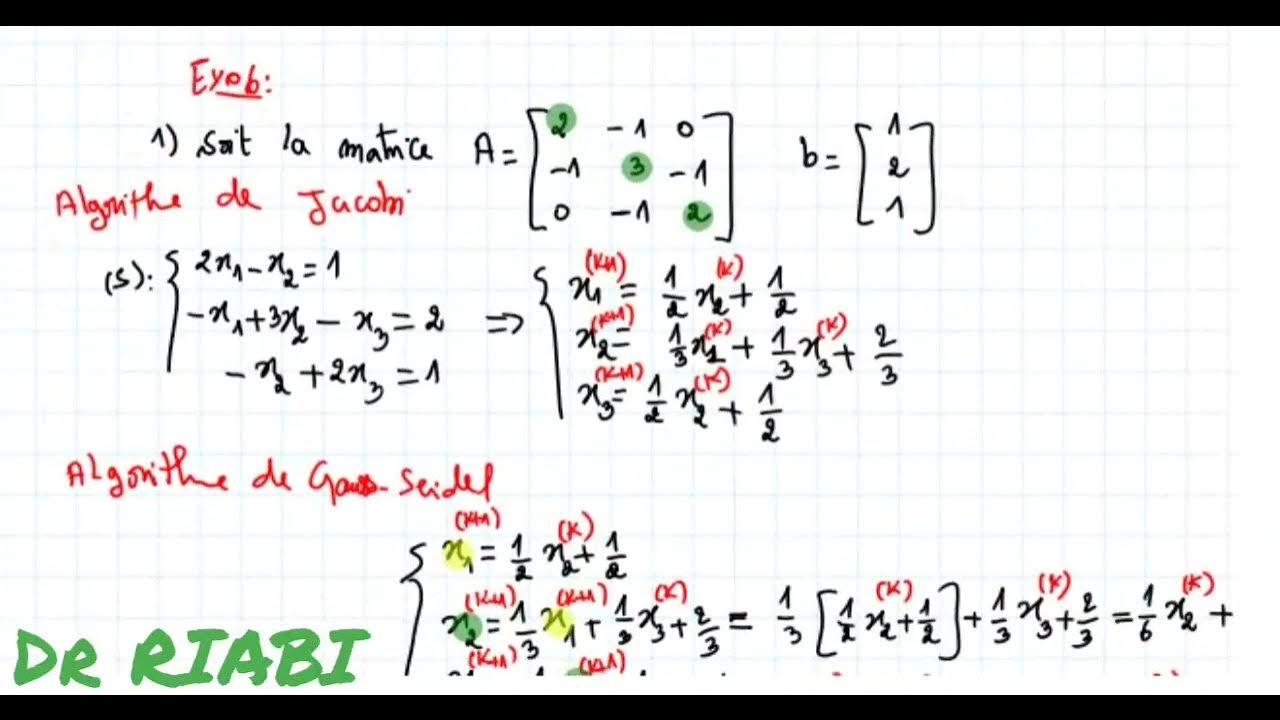 Exo6:
1) Soit la matrice A = [2 -1 0; -1 3 -1; 0 -1 2] b = [1; 2; 1]
Algorithe de Jacobi
(S): { 2x₁ - x₂ = 1 ⇒ { x₁^(k+1) = 1/2 x₂^(k) + 1/2
-x₁ + 3x₂ - x₃ = 2 x₂^(k+1) = 1/3 x₁^(k) + 1/3 x₃^(k) + 2/3
-x₂ + 2x₃ = 1 x₃^(k+1) = 1/2 x₂^(k) + 1/2
Algorithe de Gauss-Seidel
{ x₁^(k+1) = 1/2 x₂^(k) + 1/2
x₂^(k+1) = 1/3 x₁^(k+1) + 1/3 x₃^(k) + 2/3 = 1/3 [1/2 x₂^(k) + 1/2] + 1/3 x₃^(k) + 2/3 = 1/6 x₂^(k) +
(k+1) (k+1)
DR RIABI